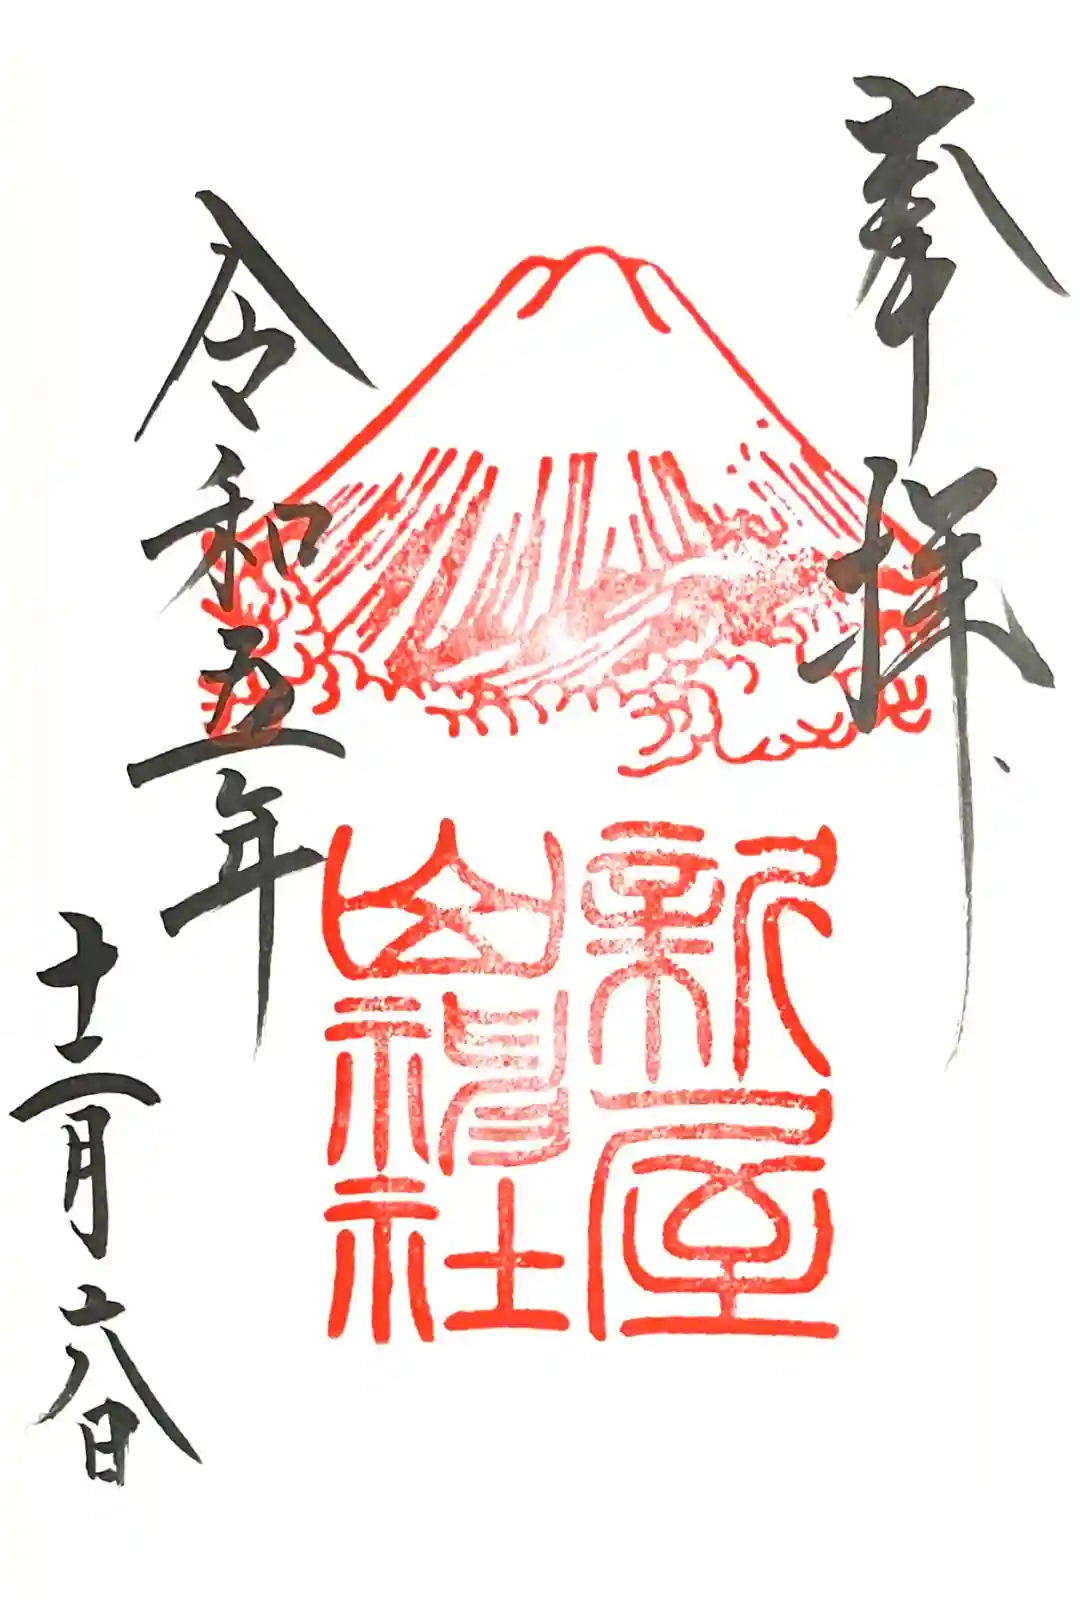 奉拝
新屋
山神社
令和五年
十二月六日